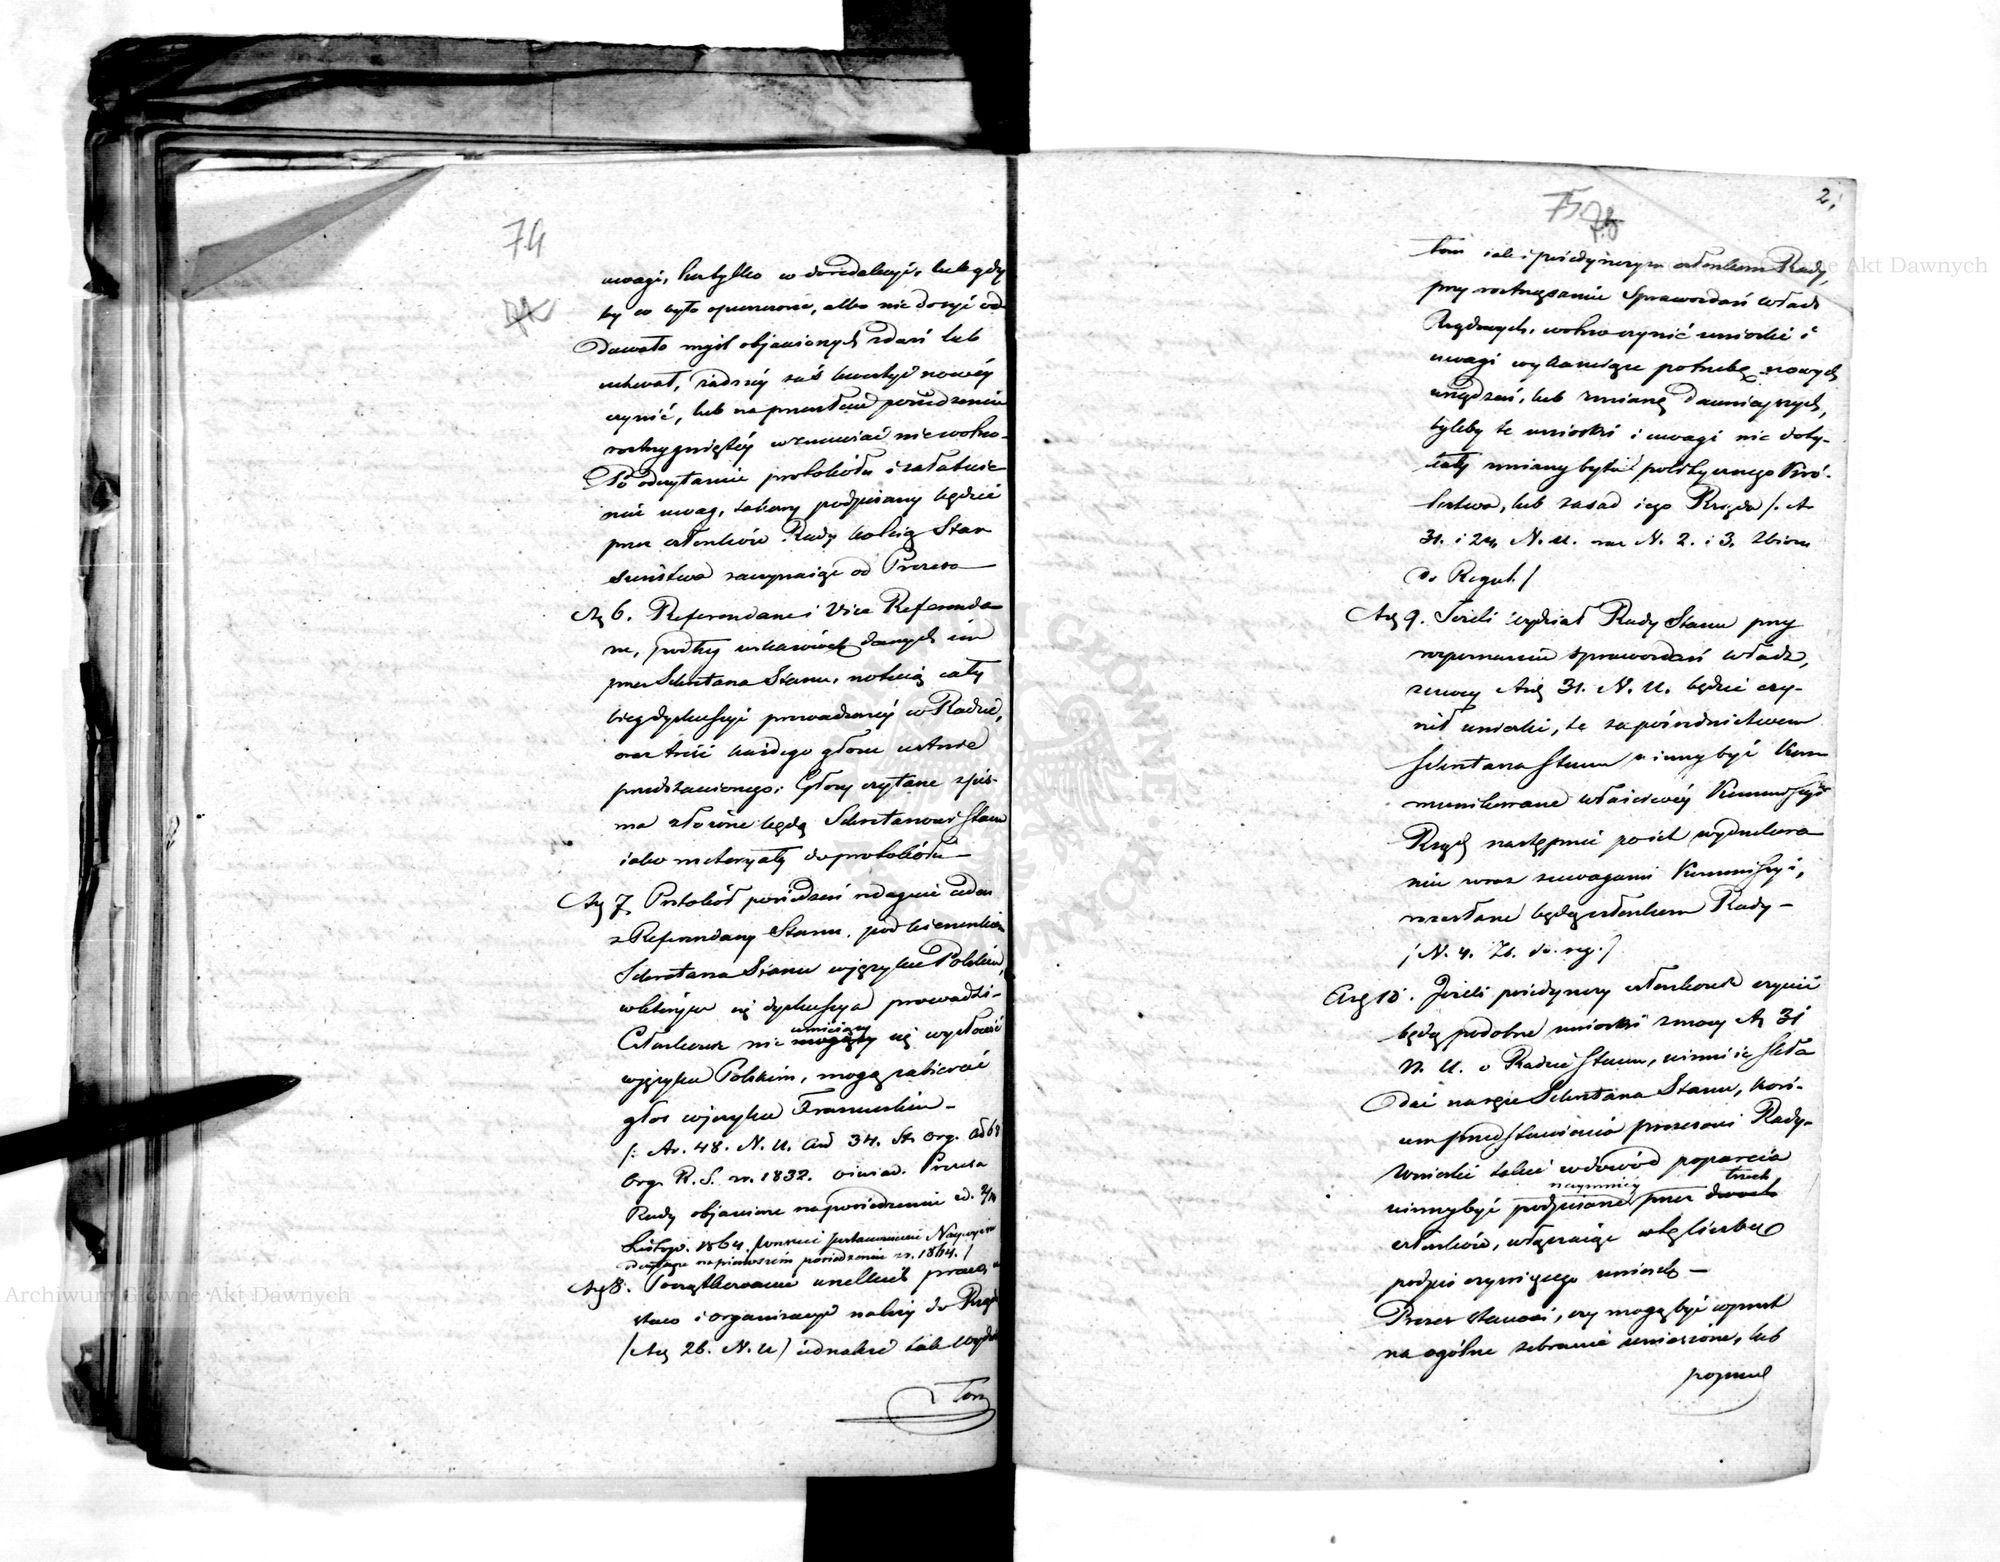 74
uwagi, lecz tylko w do redakcyi, lub gdy
by co było opuszczone, albo nie dosyć od
dawało myśl objawionych zdań lub
uchwał, żadnéj zaś kwestyi nowéj
czynić, lub na przeszłem posiedzeniu
rozstrzygniętéj wznawiać nie wolno.
Po odczytaniu protokółu i załatwie
niu uwag, takowy podpisany będzie
przez członków Rady koleją Star
szeństwa zaczynając od Prezesa
Art 6. Referendarze i Vice Referenda
rze, podług wskazówek danych im
przez Sekretarza Stanu, notują cały
bieg dyskussyi prowadzonéj w Radzie,
oraz treść każdego głosu ustnie
przedstawionego; Głosy czytane z pis-
ma złożone będą Sekretarzowi Stanu
jako materyały do protokółu
Art 7. Protokół posiedzeń redaguje jeden
z Referendarzy Stanu, pod kierunkiem
Sekretarza Stanu w języku Polskim,
w którym się dyskussya prowadzi.
umiejący
Członkowie nie mogący się wysłowić
w języku Polskim, mogą zabierać
głos w języku Francuskim
/: Ar. 48. N. U. Art 34. St. org. Art 68
Org. R. S. z r. 1832. Prezesa
Rady objawione na posiedzeniu
Listop. 1864.
na pierwszem posiedzeniu r. 1864. /
Art 8. Początkowanie wszelkich praw, u
staw i organizacyi należy do Rządu
/Art 26. N. U/ jednakże tak Wydzia
łom
2,
75
tom jak i pojedynczym członkom Rady,
przy roztrząsaniu Sprawozdań Władz
Rządowych, wolno czynić wnioski i
uwagi wykazujące potrzebę nowych
urządzeń, lub zmianę dawniejszych,
byleby te wnioski i uwagi nie doty-
kały zmiany bytu politycznego Kró-
lestwa, lub zasad jego Rządu /: Ar
31. i 24. N. U. oraz N. 2. i 3. Zbioru
do Regul. /
Art 9. Jeżeli wydział Rady Stanu przy
rozpoznaniu sprawozdań Władz,
z mocy Art 31. N. U. będzie czy-
nił wnioski, te za pośrednictwem
Sekretarza Stanu winny być Kom
munikowane właściwéj Kommissyi
Rząd. następnie po ich wydrukowa
niu wraz z uwagami Kommissyi,
rozesłane będą członkom Rady
/ N. 4. Zb. do reg. /
Art 10. Jeżeli pojedynczy członkowie czynić
będą podobne wnioski z mocy Ar 31
N. U. o Radzie Stanu, winni je skła
dać na ręce Sekretarza Stanu,
przedstawienia prezesowi Rady
Wnioski takie w dowód poparcia
najmniéj trzech
winny być podpisane przez dwóch
członków, włączając w tę liczbę
podpis czyniącego wniosek
Prezes stanowi, czy mogą być wprost
na ogólne zebranie wniesione, lub
poprzed